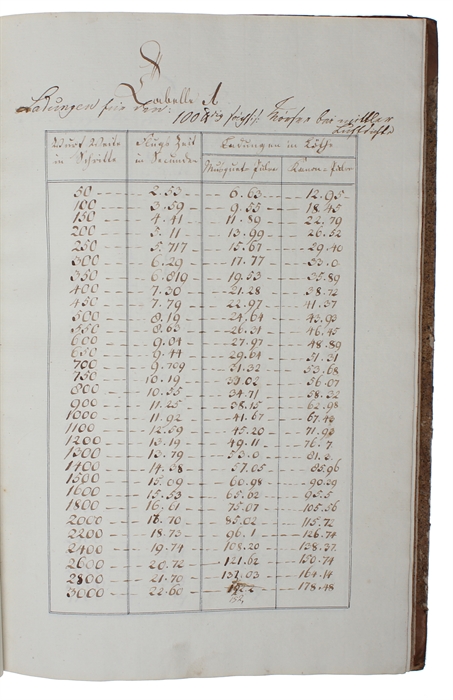 Tabelle A
Ladungen für den 100 sächs: Mörser bei mittler
Wurf Weite Flugs Zeit Ladungen in Loth
in Schritte in Secunde Musquet-Pulver Kanon-Pulver
50 2.53 6.63 12.95
100 3.59 9.55 18.45
150 4.41 11.89 22.79
200 5.11 13.99 26.52
250 5.717 15.67 29.40
300 6.29 17.77 33.0
350 6.819 19.53 35.89
400 7.30 21.28 38.72
450 7.79 22.97 41.37
500 8.19 24.64 43.99
550 8.63 26.31 46.45
600 9.04 27.97 48.89
650 9.44 29.64 51.31
700 9.709 31.32 53.68
750 10.19 33.02 56.07
800 10.55 34.71 58.32
900 11.25 38.15 62.98
1000 11.92 41.67 67.48
1100 12.59 45.20 71.99
1200 13.19 49.11 76.7
1300 13.79 53.0 81.2
1400 14.38 57.05 85.96
1500 15.09 60.98 90.29
1600 15.53 65.62 95.5
1800 16.61 75.07 105.56
2000 17.70 85.02 115.72
2200 18.73 96.1 126.74
2400 19.74 108.20 138.37
2600 20.72 121.62 150.74
2800 21.70 137.03 164.14
3000 22.60 178.48